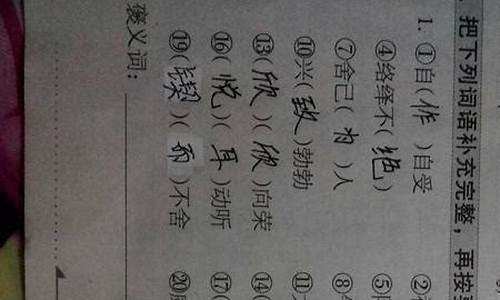 把下列词语补充完整，再按
1. ①自(作)自受 ②
④络绎不(绝) ⑤
⑦舍己(为)人 ⑧
⑩兴(致)勃勃 ⑪
⑬(欣)(欣)向荣 ⑭(
⑯(悦)(耳)动听 ⑰(
⑲(锲)(而)不舍 ⑳
褒义词：